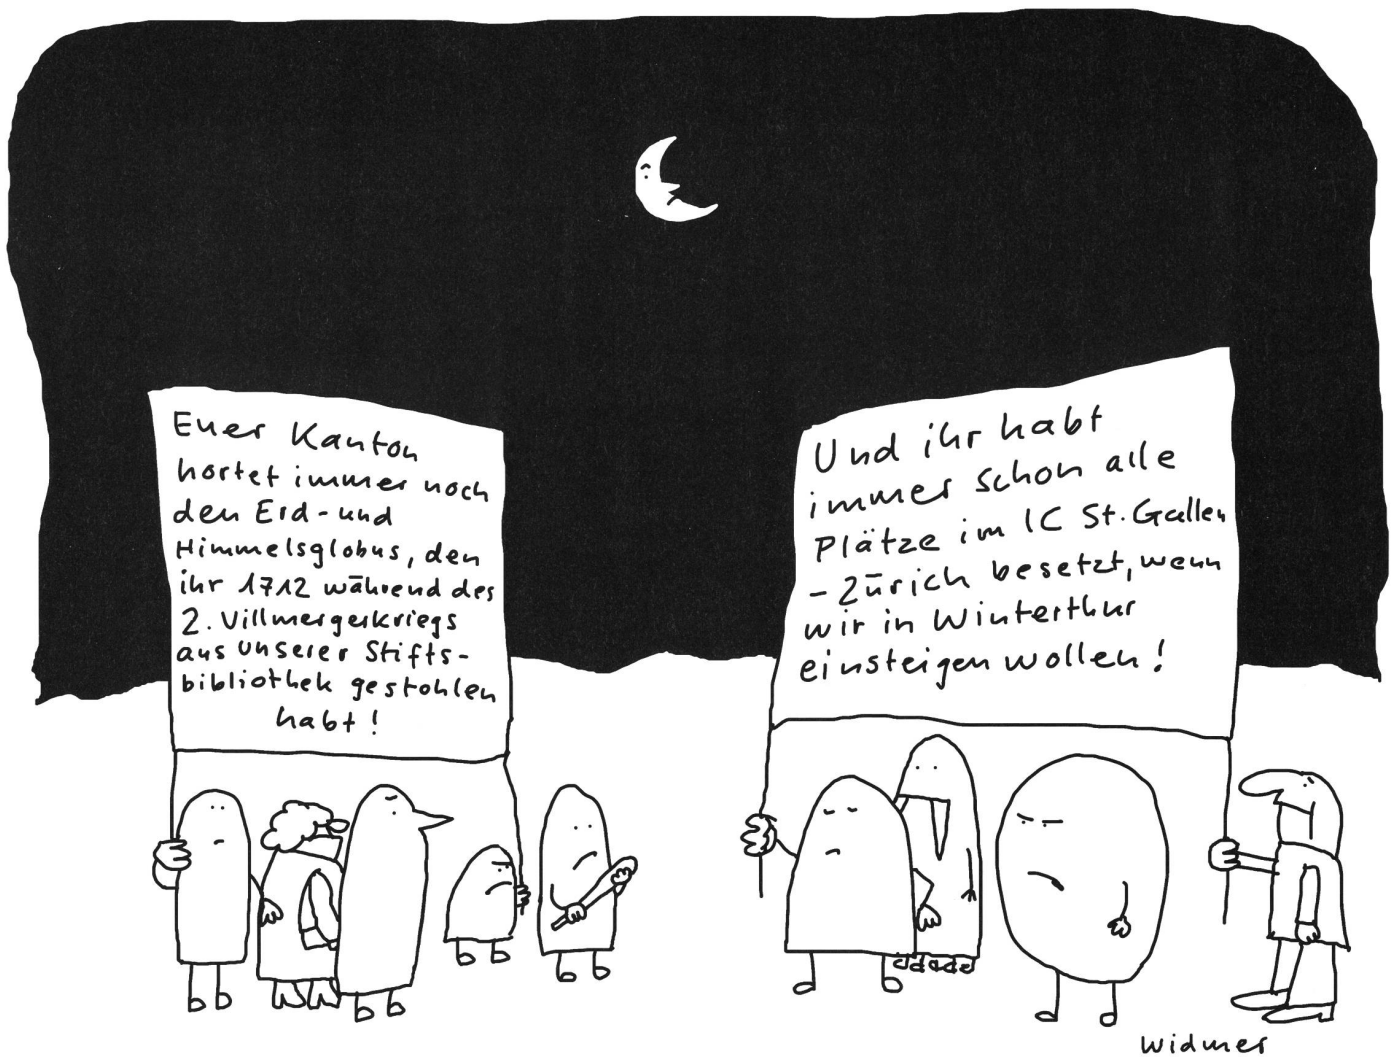 Euer Kanton
hortet immer noch
den Erd- und
Himmelsglobus, den
ihr 1712 während des
2. Villmergerkriegs
aus unserer Stifts-
bibliothek gestohlen
habt!
Und ihr habt
immer schon alle
Plätze im IC St. Gallen
- Zürich besetzt, wenn
wir in Winterthur
einsteigen wollen!
Widmer